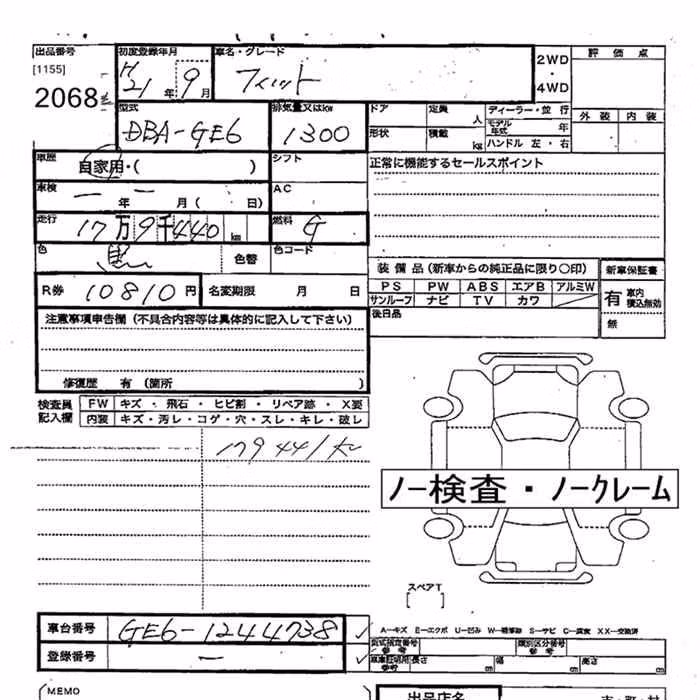 出品番号 初度登録年月 車名・グレード 2WD ・ 4WD 評価点
[1155] H21年 9月 フィット
2068 外装 内装
型式 排気量又はkw ドア 定員 人 ディーラー・並行
DBA-GE6 1300 形状 積載 kg モデル年式 年
ハンドル 左・右
車歴 自家用・( ) シフト 正常に機能するセールスポイント
車検 ー年 ー月( 日) AC
走行 17万9千440km 燃料 G
色 黒 色替 色コード
装備品(新車からの純正品に限り○印) 新車保証書
PS PW ABS エアB アルミW 有 車内積込無効
サンルーフ ナビ TV カワ
R券 10810円 名変期限 月 日
後日品 無
注意事項申告欄(不具合内容等は具体的に記入して下さい)
修復歴 有(箇所 )
検査員記入欄 FW キズ・飛石・ヒビ割・リペア跡・X要
内装 キズ・汚レ・コゲ・穴・スレ・キレ・破レ
179441K
ノー検査・ノークレーム
スペアT
[ ]
車台番号 GE6-1244738
A―キズ E―エクボ U―凹み S―サビ C―腐食 XX―交換済
登録番号 ー
類別区分番号
長さ cm 幅 cm 高さ cm
MEMO 出品店名 市・町・村